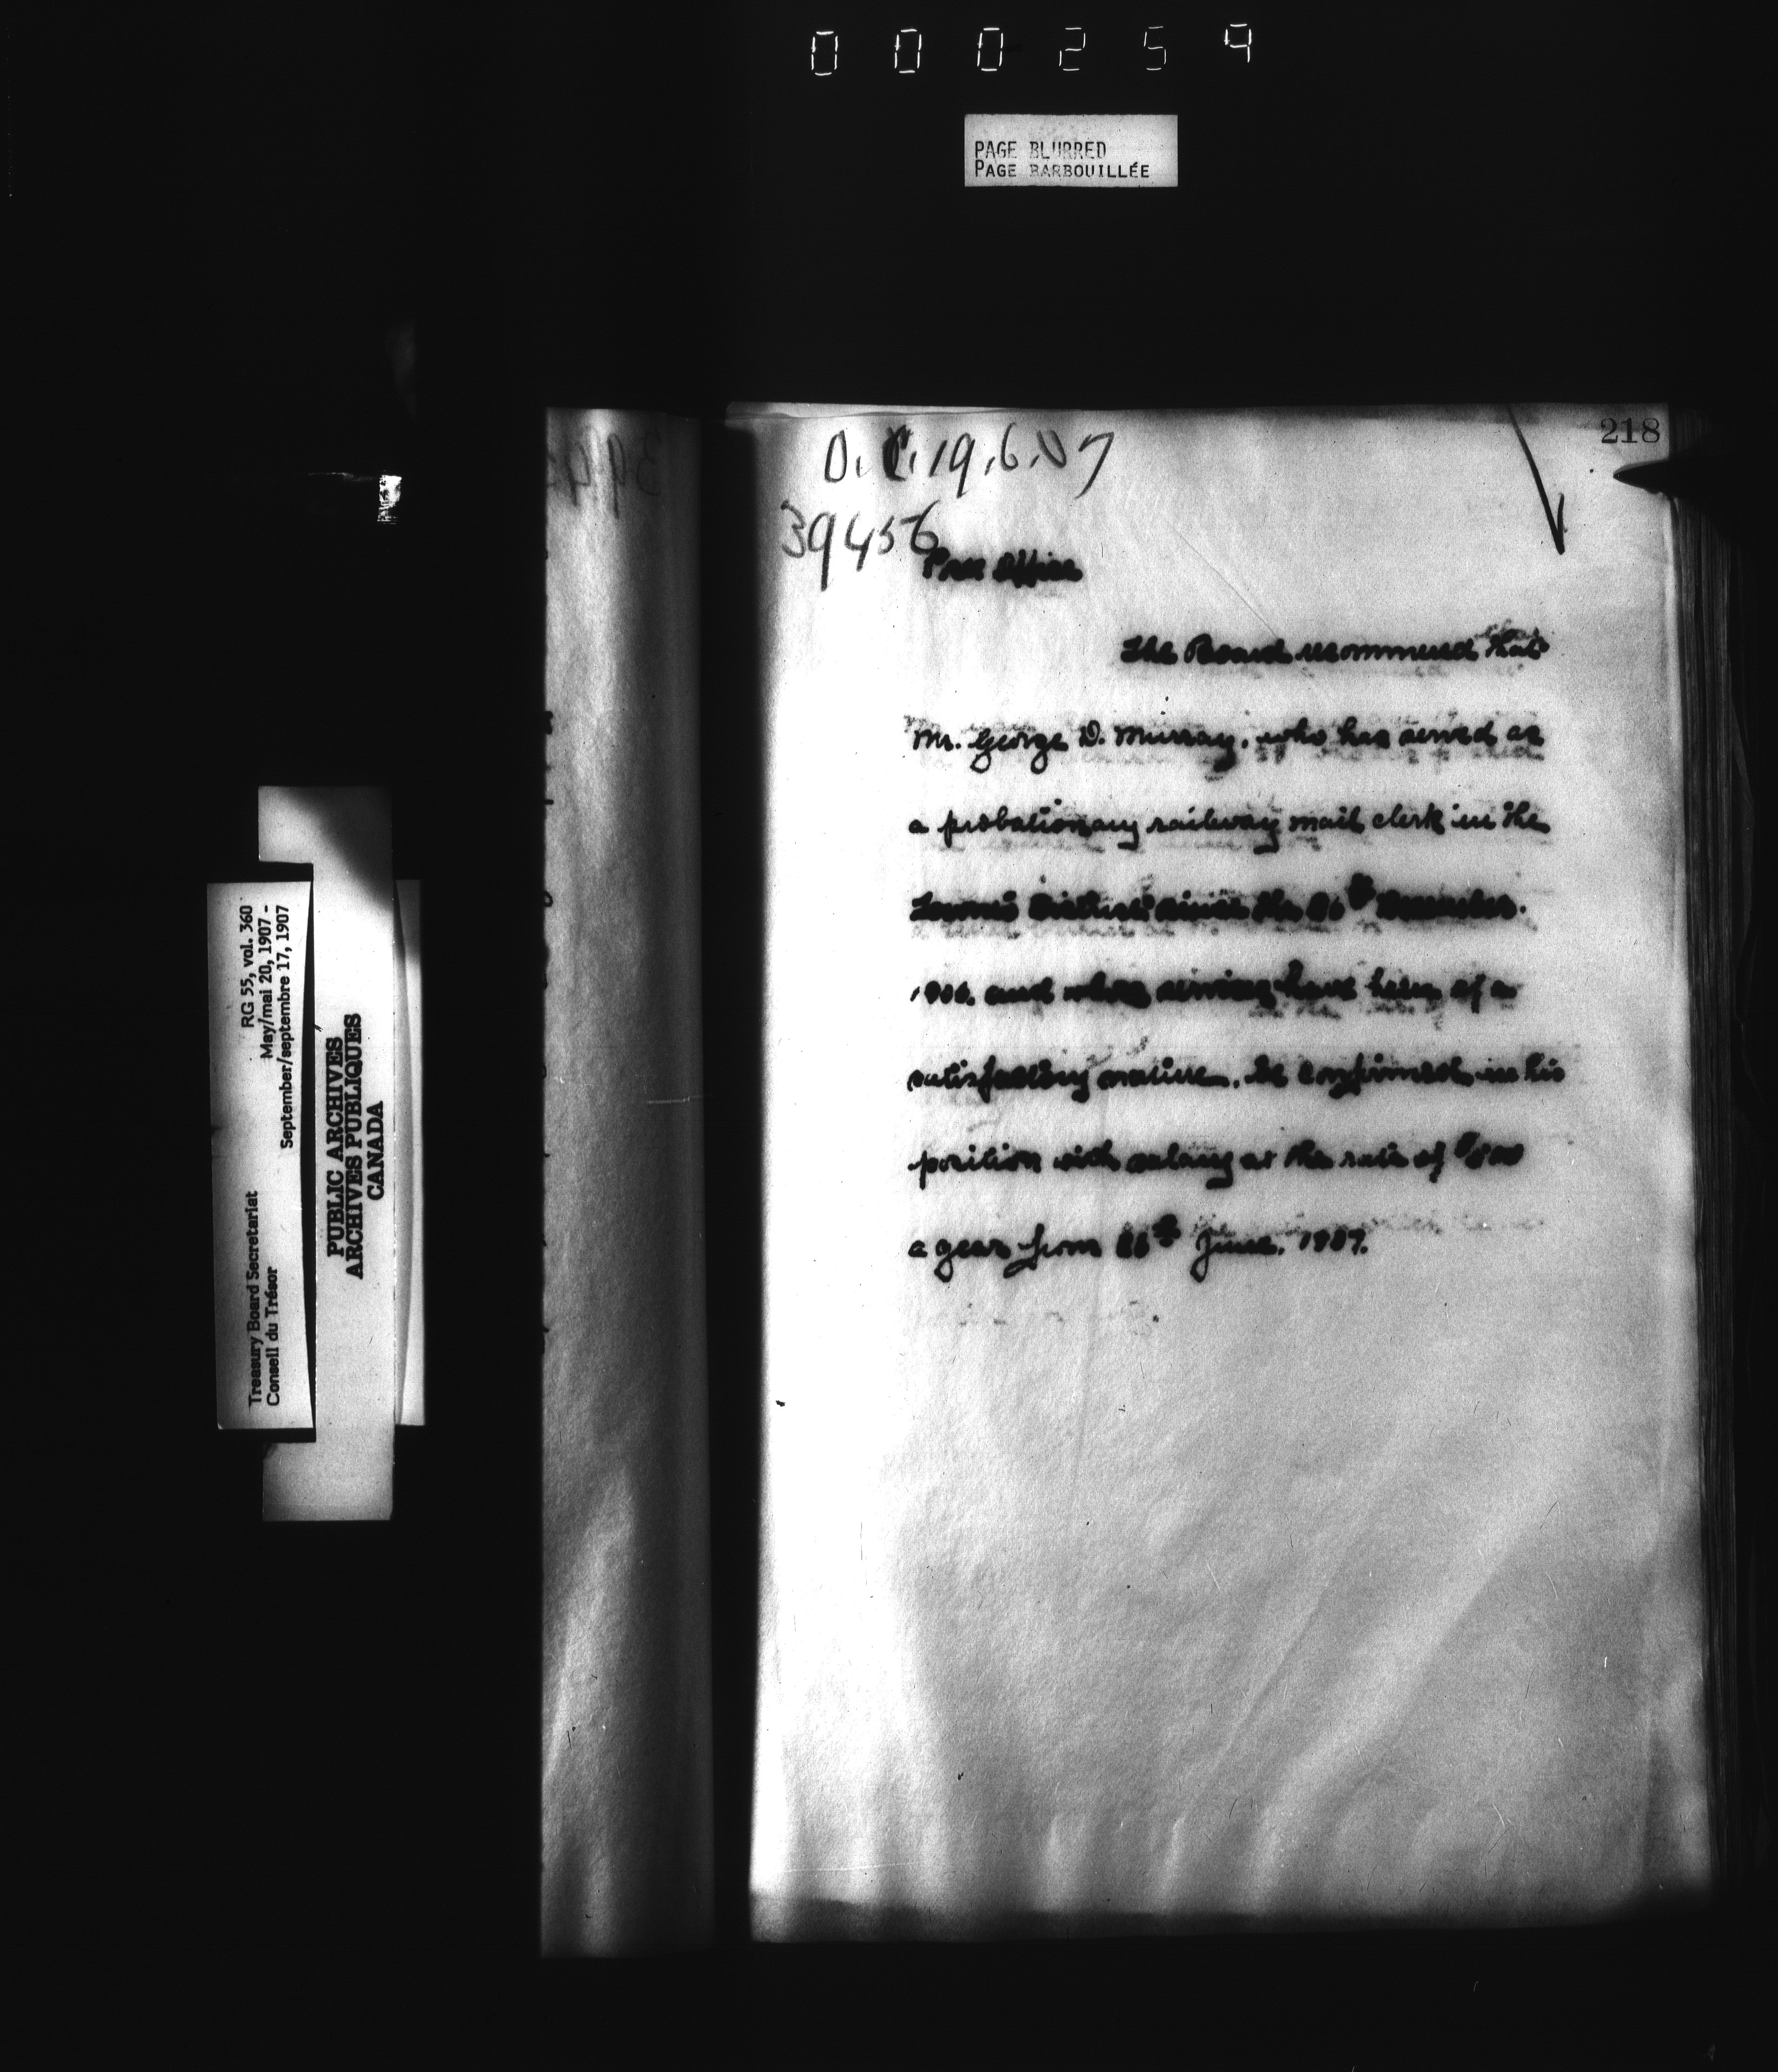 000254
PAGE BLURRED
PAGE BARBOUILLÉE
218
O.C. 19.6.07
39456
Post Office
The Board recommend that
Mr. George D. Murray, who has served as
a probationary railway mail clerk in the
District since the December,
1906, and whose services have been of a
satisfactory nature, be confirmed in his
position with salary at the rate of
a year from June, 1907.
RG 55, vol. 360
May/mai 20, 1907 -
September/septembre 17, 1907
Treasury Board Secretariat
Conseil du Trésor
PUBLIC ARCHIVES
ARCHIVES PUBLIQUES
CANADA